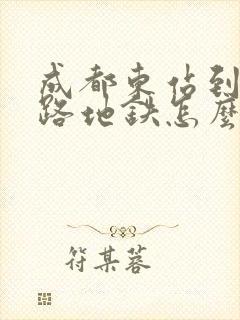 成都东站到
路地铁怎麼
符某蓉